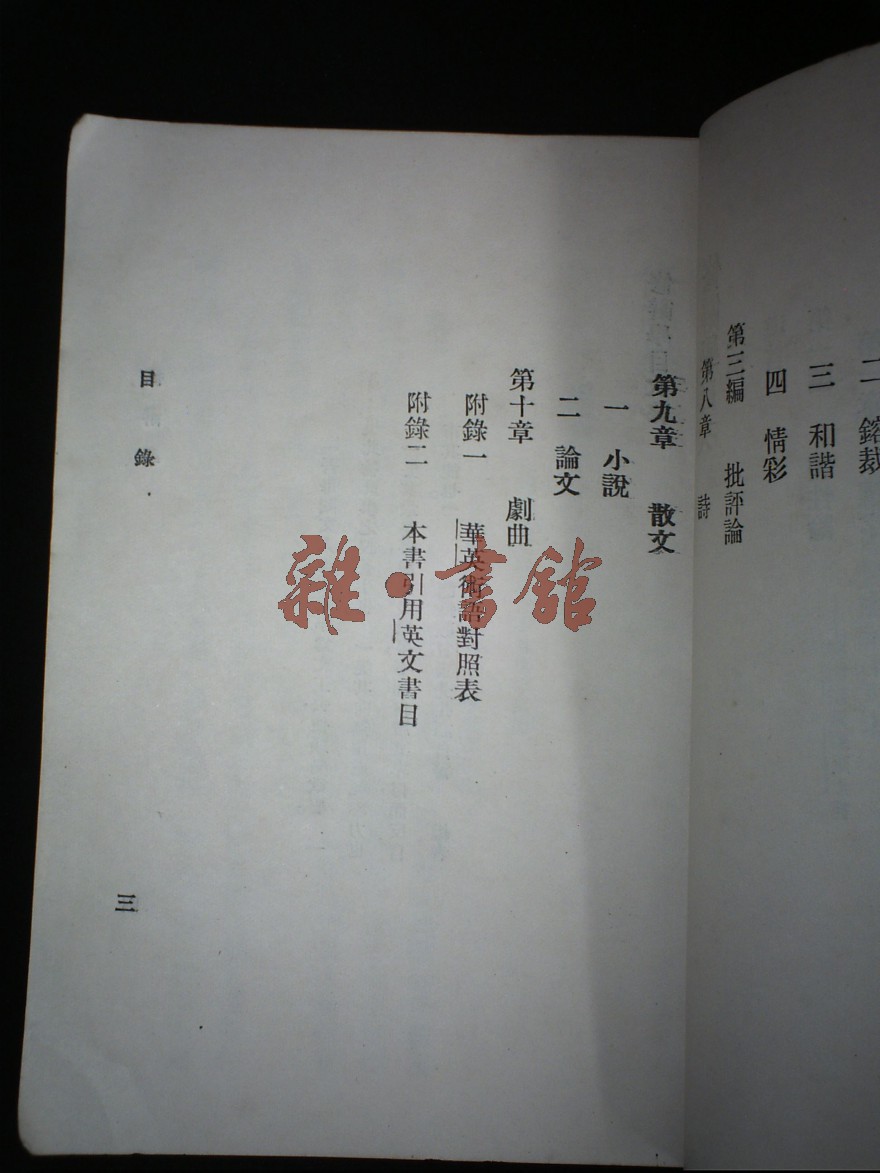 二　鎔裁
三　和諧
四　情彩
第三編　批評論
第八章　詩
第九章　散文
一　小說
二　論文
第十章　劇曲
附錄一　華英術語對照表
附錄二　本書引用英文書目
目錄
三
雜·書館